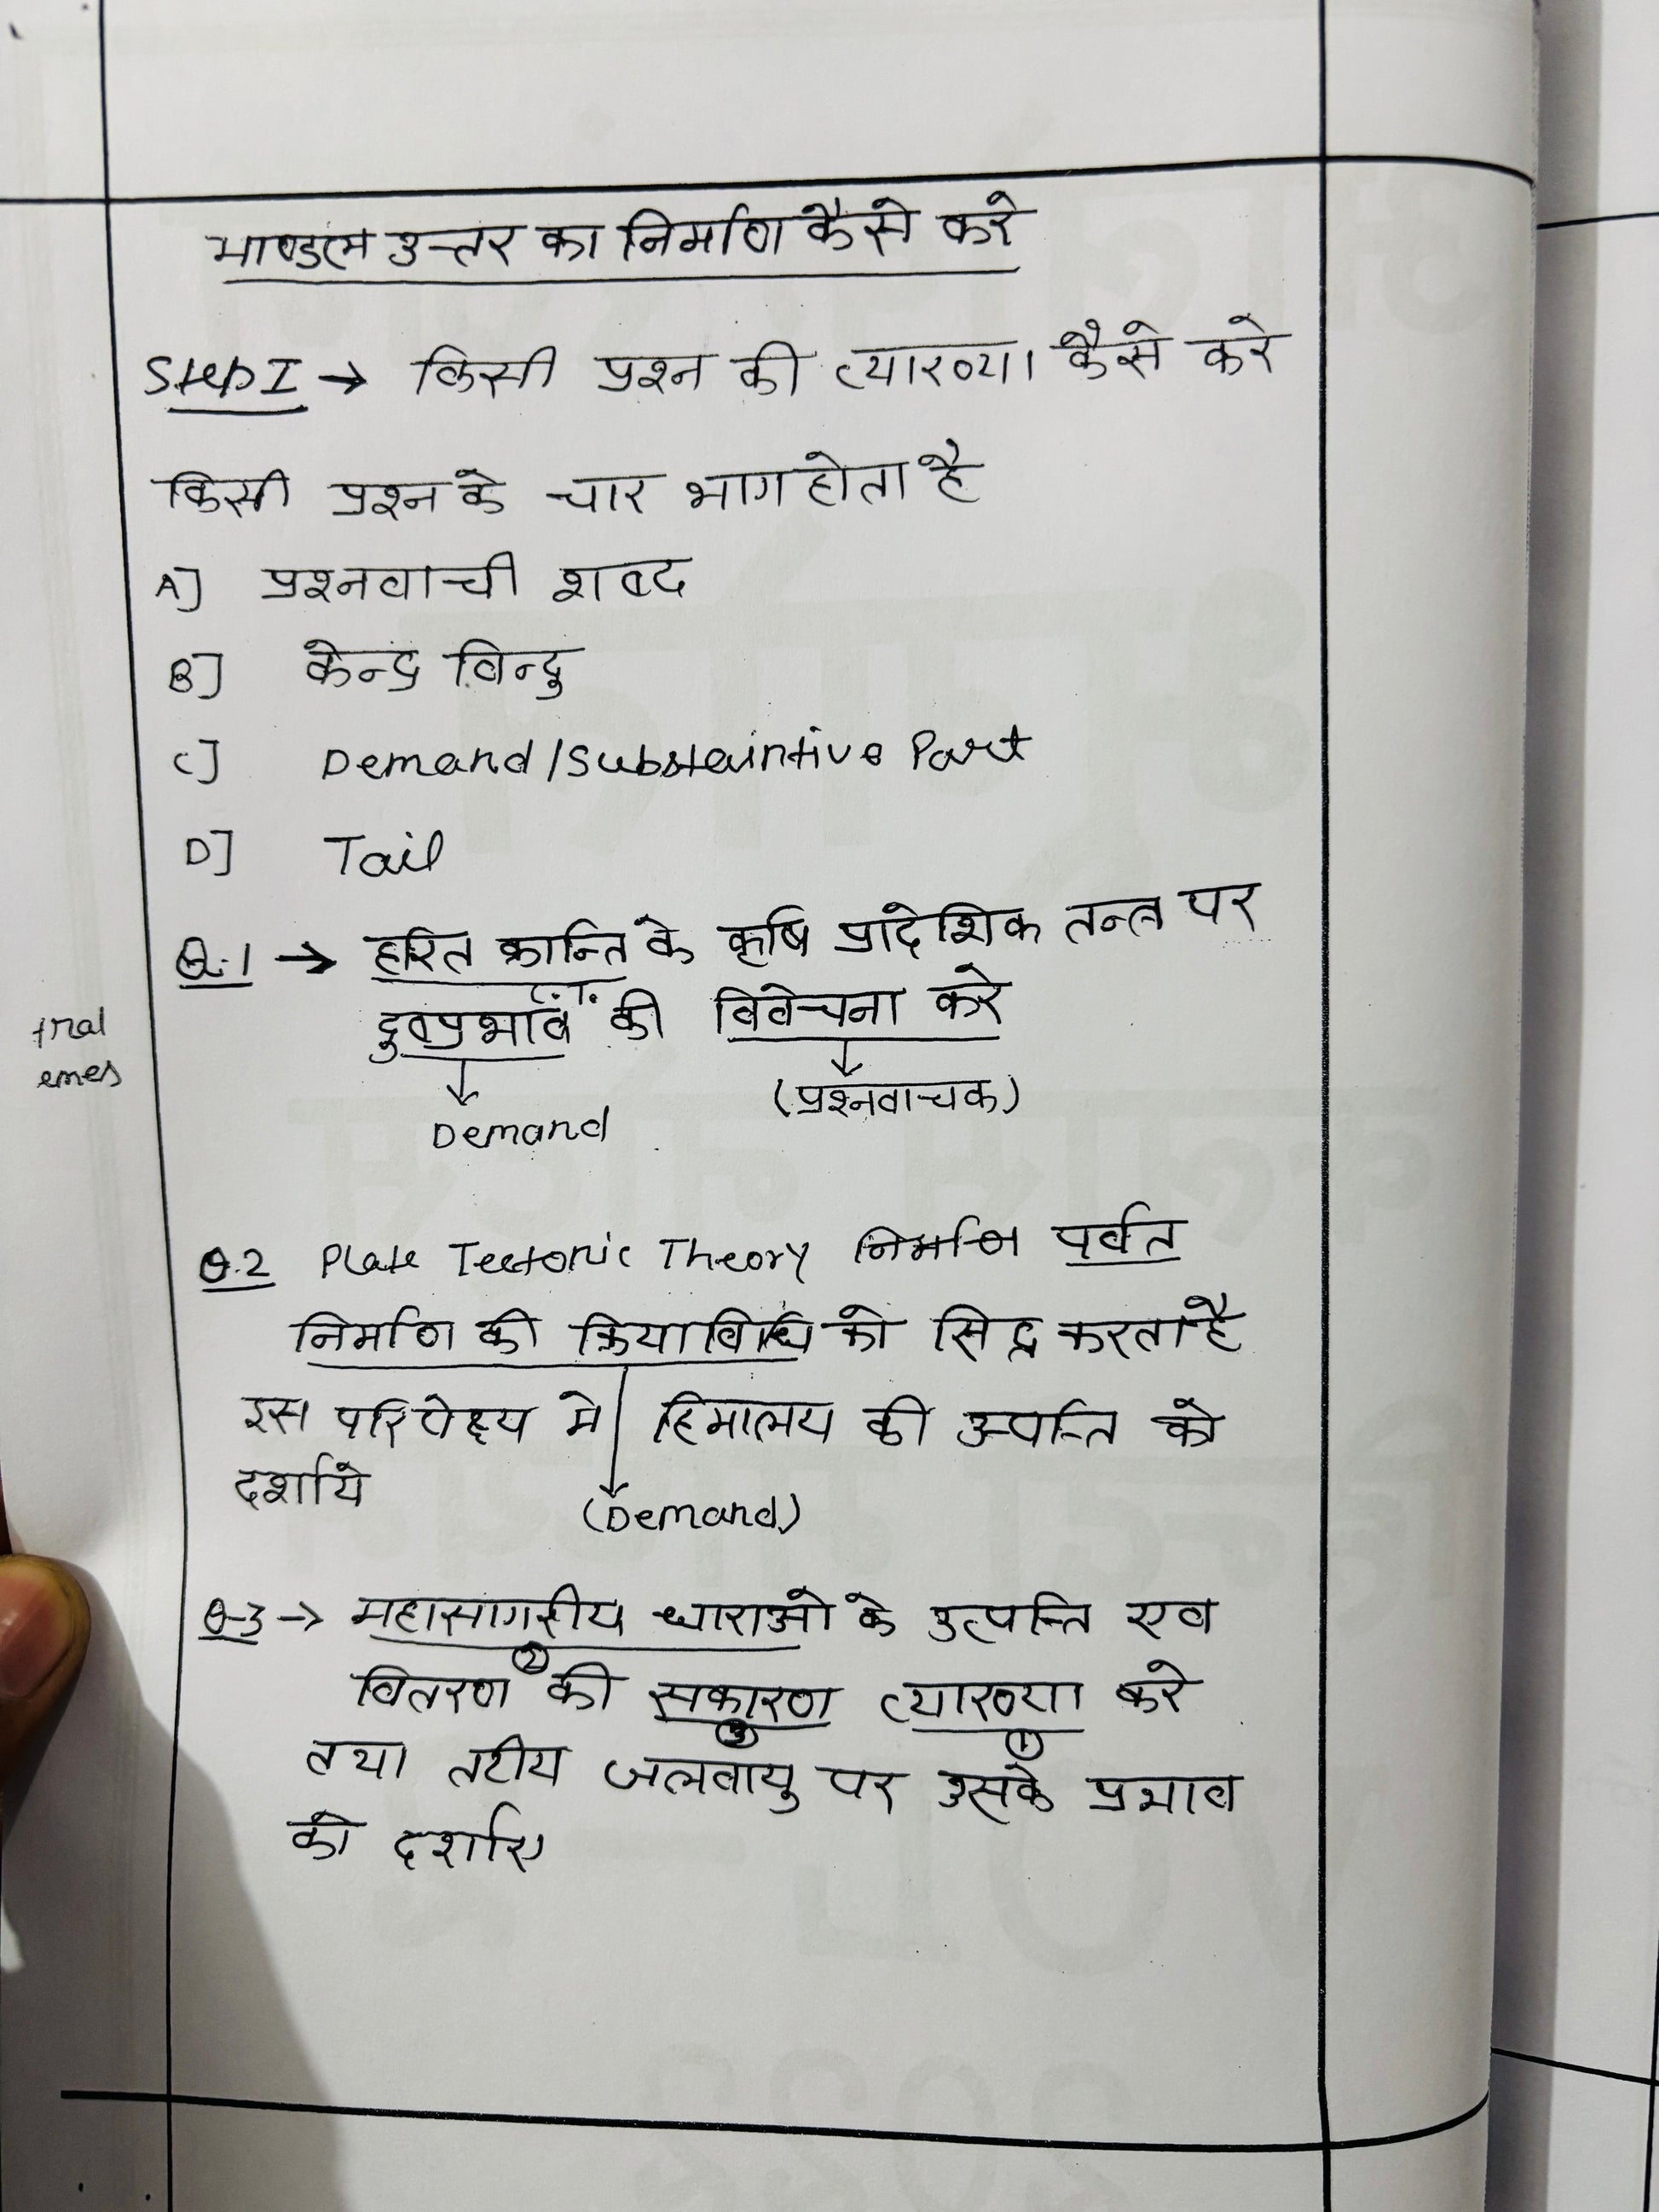 माण्डल उत्तर का निर्माण कैसे करे
Step I → किसी प्रश्न की व्याख्या कैसे करे
किसी प्रश्न के चार भाग होता है
A] प्रश्नवाची शब्द
B] केन्द्र विन्दु
C] Demand/Substaintive Part
D] Tail
Q.1 → हरित क्रान्ति के कृषि प्रादेशिक तन्त्र पर
C.T.
दुष्प्रभाव की विवेचना करे
(प्रश्नवाचक)
Demand
tral
emes
Q.2 Plate Tectonic Theory निर्माण पर्वत
निर्माण की क्रियाविधि को सिद्ध करता है
इस परिपेक्ष्य मे हिमालय की उत्पत्ति को
दर्शाये
(Demand)
Q-3 → महासागरीय धाराओ के उत्पत्ति एव
②
वितरण की सकारण व्याख्या करे
③ ①
तथा तटीय जलवायु पर उसके प्रभाव
को दर्शाए